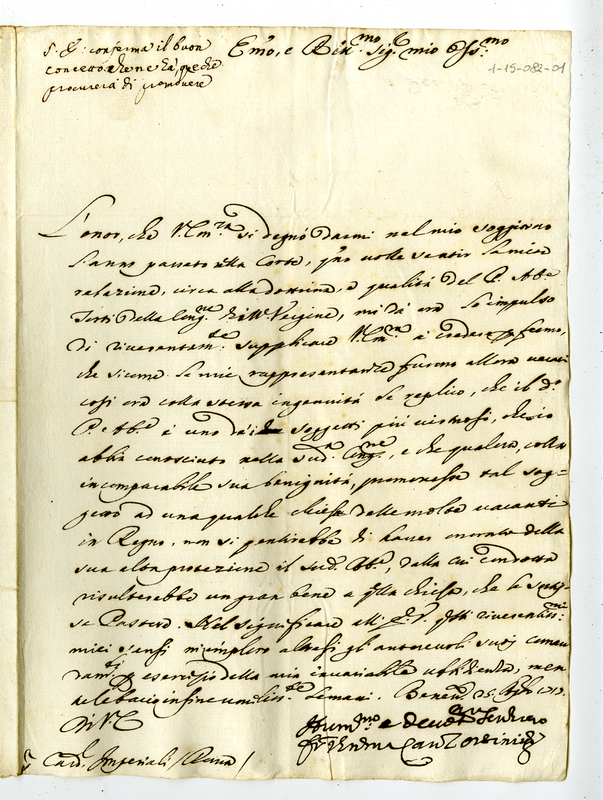 S. E. conferma il buon
concetto che ne ha, e che
procurerà di promovere
Emo, e Rev.mo Sig.r mio Oss.mo
1-15-082-01
L'onor, che V. Em.za si degnò darmi nel mio soggiorno
l'anno passato alla Corte, q.do volle sentir la mia
relazione, circa alla dottrina, e qualità del P. Ab.e
Torti della Cong.ne di M.e Vergine, mi dà ora l'impulso
di riverentem.te supplicare V. Em.za a credere p. fermo,
che sicome le mie rappresentanze furono allora veraci
così ora colla stessa ingenuità le replico, che il d.o
P. Ab.e è uno de' soggetti più virtuosi, che io
abbia conosciuto nella sud.a Cong.ne, e che qualora, colla
incomparabile sua benignità, promovesse tal sog=
getto ad una qualche chiesa delle molte vacanti
in Regno, non si pentirebbe di haver onorato della
sua alta protezione il sud. Abb.e, dalla cui condotta
risulterebbe un gran bene a q.lla chiesa, che lo sortis-
se Pastore. Nel significare all' E. V. q.sti riverentiss.mi
miei sensi imploro altresì gli autorevoli suoi coman
dam.ti p. esercizio della mia invariabile ubbidienza, men
tre le bacio infine umiliss.te le mani. Benev.
Di V. E.
Hum.mo e devot.mo Servitore
Fr. Card. Orsini
Card. Imperiali (Roma)